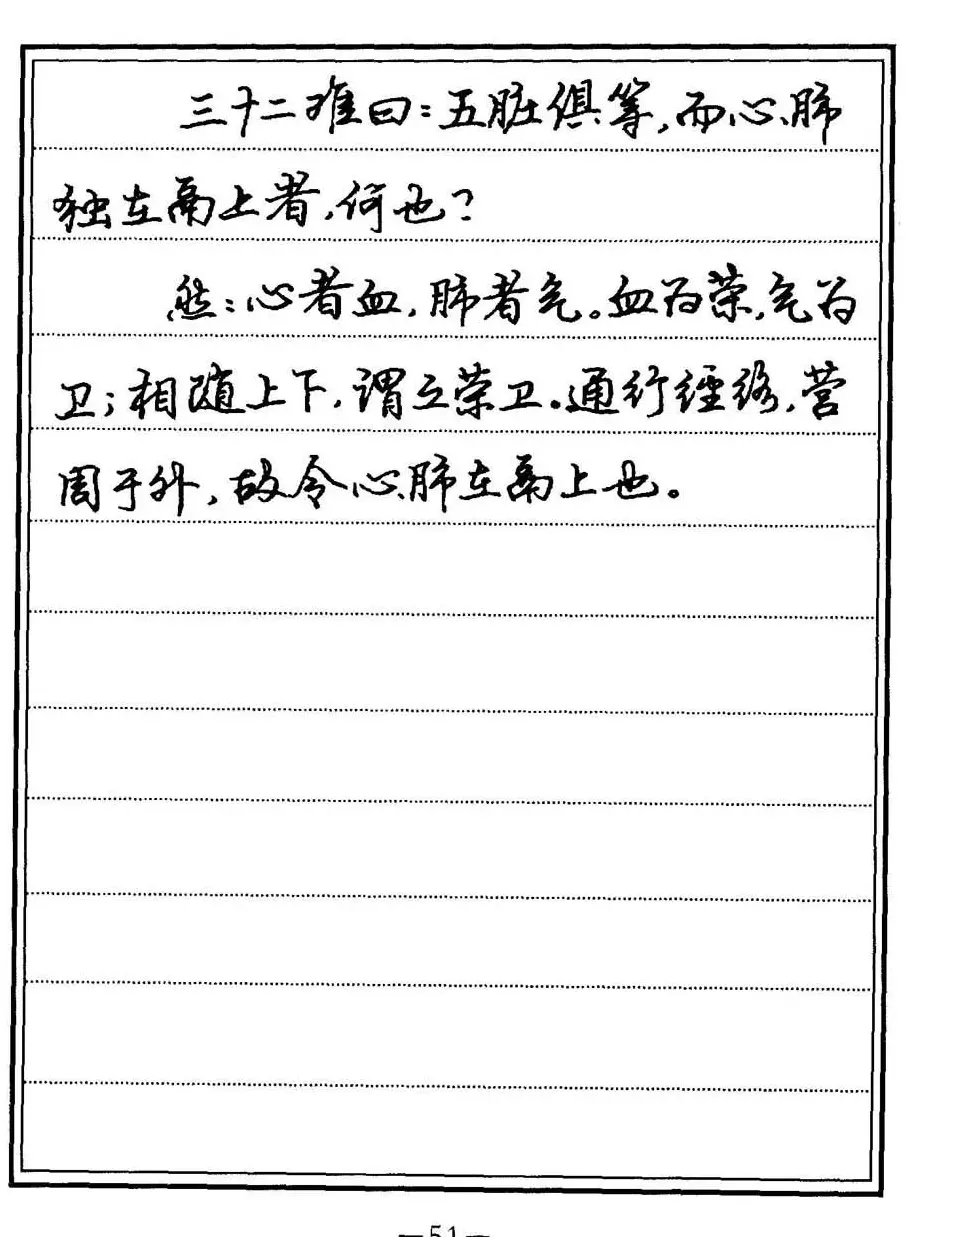 三十二难曰：五脏俱等，而心、肺
独在鬲上者，何也？
然：心者血，肺者气。血为荣，气为
卫；相随上下，谓之荣卫。通行经络，营
周于外，故令心、肺在鬲上也。
—51—